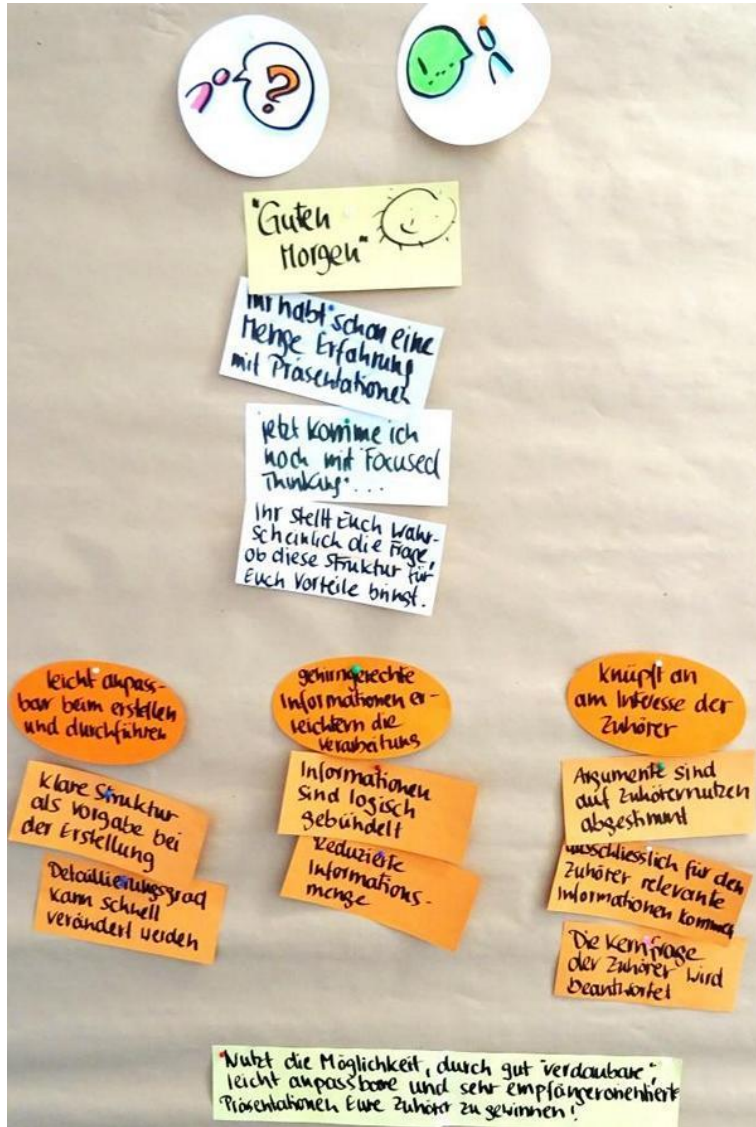 ?
"Guten
Morgen"
Ihr habt schon eine
Menge Erfahrung
mit Präsentationen
jetzt komme ich
noch mit Focused
Thinking...
Ihr stellt Euch wahr-
scheinlich die Frage,
ob diese Struktur für
Euch Vorteile bringt.
leicht anpass-
bar beim erstellen
und durchführen
Klare Struktur
als Vorgabe bei
der Erstellung
Detaillierungsgrad
kann schnell
verändert werden
gehirngerechte
Informationen er-
leichtern die
Verarbeitung
Informationen
sind logisch
gebündelt
Reduzierte
Informations-
menge
knüpft an
am Interesse der
Zuhörer
Argumente sind
auf Zuhörernutzen
abgestimmt
ausschliesslich für den
Zuhörer relevante
Informationen kommen
Die Kernfrage
der Zuhörer wird
beantwortet
"Nutzt die Möglichkeit, durch gut "verdaubare",
leicht anpassbare und sehr empfängerorientierte
Präsentationen Eure Zuhörer zu gewinnen!